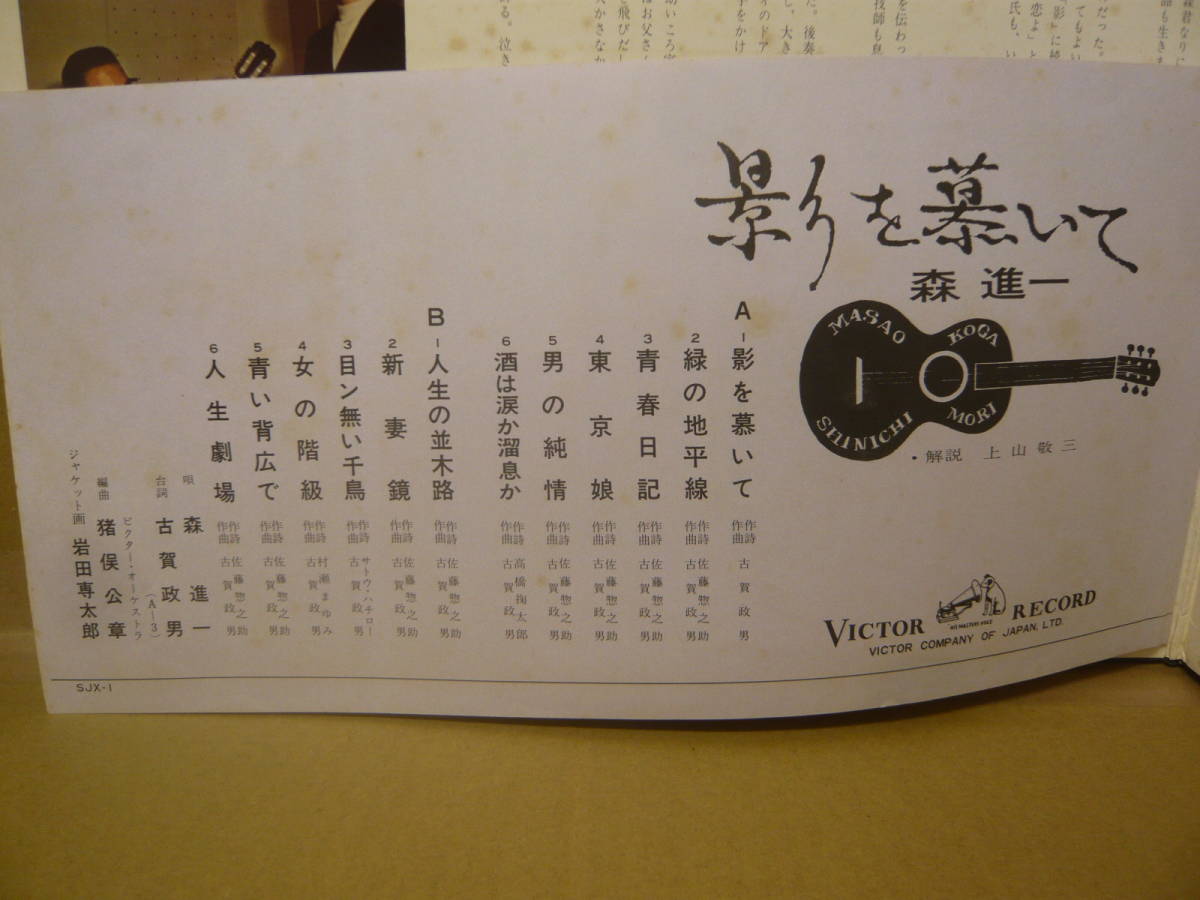 影を慕いて
森進一
MASAO KOGA
SHINICHI MORI
・解説 上山敬三
VICTOR RECORD
HIS MASTER'S VOICE
VICTOR COMPANY OF JAPAN, LTD.
A-1 影を慕いて 作詩 作曲 古賀政男
2 緑の地平線 作詩 佐藤惣之助 作曲 古賀政男
3 青春日記 作詩 佐藤惣之助 作曲 古賀政男
4 東京娘 作詩 佐藤惣之助 作曲 古賀政男
5 男の純情 作詩 佐藤惣之助 作曲 古賀政男
6 酒は涙か溜息か 作詩 高橋掬太郎 作曲 古賀政男
B-1 人生の並木路 作詩 佐藤惣之助 作曲 古賀政男
2 新妻鏡 作詩 佐藤惣之助 作曲 古賀政男
3 目ン無い千鳥 作詩 サトウ・ハチロー 作曲 古賀政男
4 女の階級 作詩 村瀬まゆみ 作曲 古賀政男
5 青い背広で 作詩 佐藤惣之助 作曲 古賀政男
6 人生劇場 作詩 佐藤惣之助 作曲 古賀政男
唄 森進一
台詞 古賀政男 (A-3)
ビクター・オーケストラ
編曲 猪俣公章
ジャケット画 岩田専太郎
SJX-1